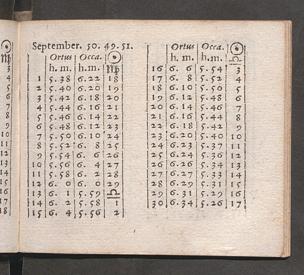 September. 50. 49. 51.
Ortus Occa. ☉
h. m. h. m. ♍
1 5.38 6.22 18
2 5.40 6.20 19
3 5.42 6.18 20
4 5.44 6.16 21
5 5.46 6.14 22
6 5.48 6.12 23
7 5.50 6.10 24
8 5.52 6. 8 25
9 5.54 6. 6 26
10 5.56 6. 4 27
11 5.58 6. 2 28
12 6. 0 6. 0 29
13 6. 1 5.59 ♎
14 6. 2 5.58 1
15 6. 4 5.56 2
Ortus Occa. ☉
h. m. h. m. ♎
16 6. 6 5.54 3
17 6. 8 5.52 4
18 6.10 5.50 5
19 6.12 5.48 6
20 6.14 5.46 7
21 6.16 5.44 8
22 6.18 5.42 9
23 6.20 5.40 10
24 6.23 5.37 11
25 6.24 5.36 12
26 6.26 5.34 13
27 6.27 5.33 14
28 6.29 5.31 15
29 6.31 5.29 16
30 6.34 5.26 17